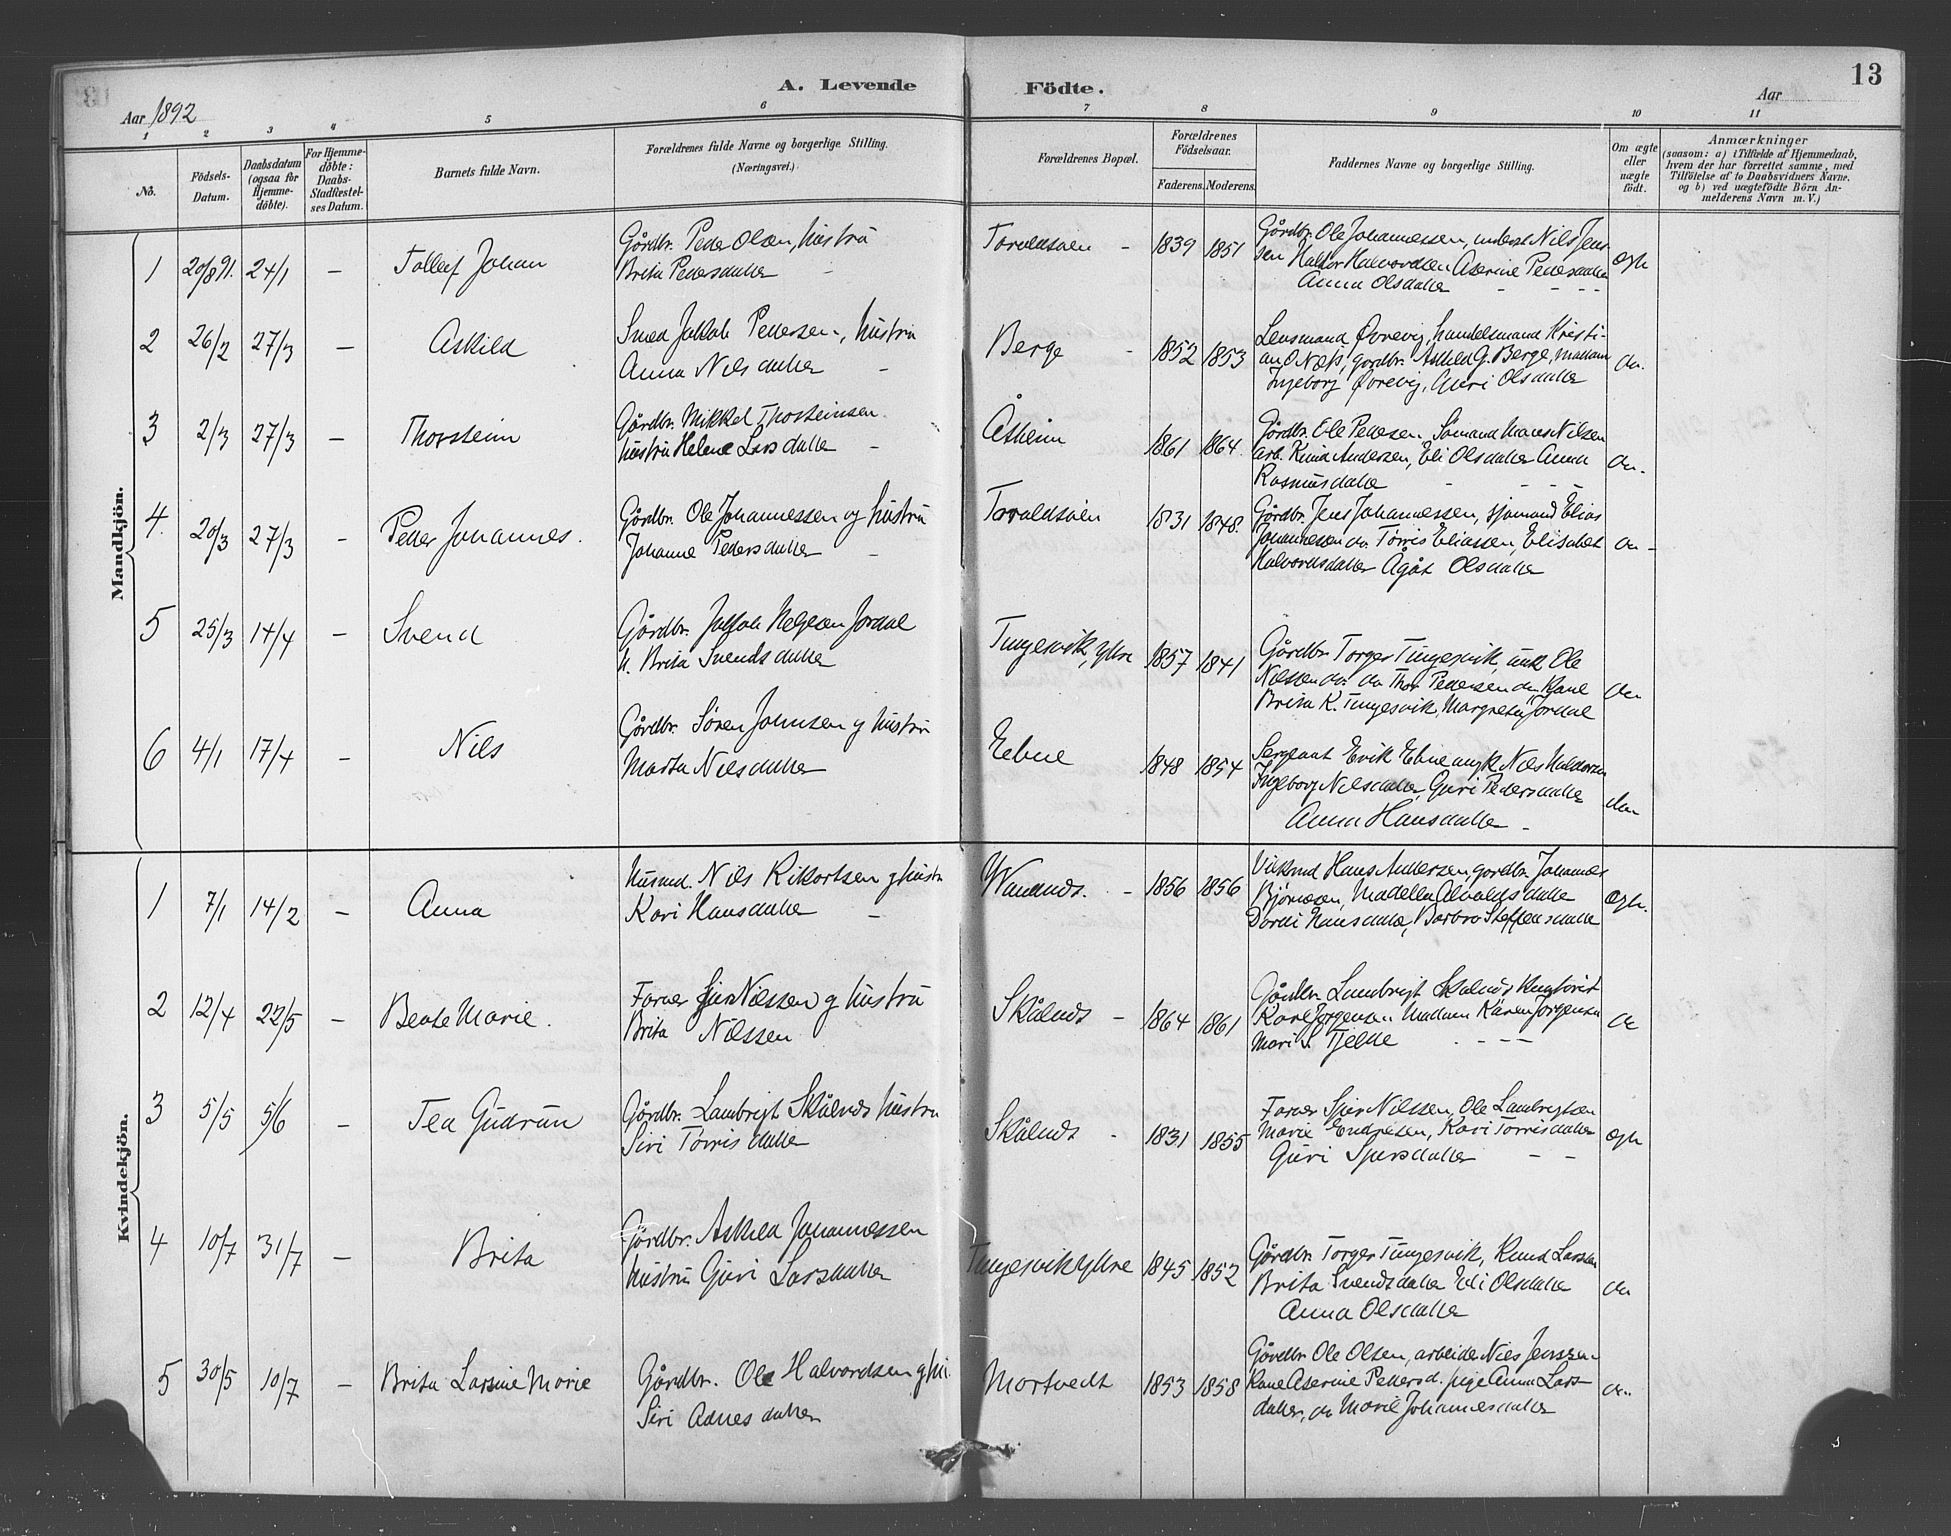 A. Levende Födte. 13
Aar 1892 Aar
1 2 3 4 5 6 7 8 9 10 11
No.
Födsels-
Datum.
Daabsdatum
(ogsaa for
Hjemme-
döbte).
For Hjemme-
döbte:
Daabs-
Stadfestel-
ses Datum.
Barnets fulde Navn.
Forældrenes fulde Navne og borgerlige Stilling.
(Næringsvei.)
Forældrenes Bopæl.
Forældrenes
Födselsaar.
Faderens. Moderens.
Faddernes Navne og borgerlige Stilling.
Om ægte
eller
uægte
födt.
Anmærkninger
(saasom: a) i Tilfælde af Hjemmedaab,
hvem der har forrettet samme, med
Tilföielse af to Daabsvidners Navne,
og b) ved uægtefödte Börn An-
melderens Navn m. V.)
Mandkjön.
1 20/8 91. 24/1 — Tollef Johan
Gårdbr. Peder Olsen, hustru
Brita Pedersdatter
1839 1851
Gårdbr. Ole Johannessen, Nils Jens-
sen Halvordsen Aserine Pedersdatter
Anna Olsdatter
2 26/2 27/3 — Askild
Smed Jakob Pedersen, hustru
Anna Nilsdatter
Berge 1852 1853
Lensmand Øvrevig, handelsmand Kristi-
an O. Næss, gårdbr. Askild G. Berge, madam
Ingeborg Øvrevig, Guri Olsdatter
do.
3 2/3 27/3 — Thorstein
Gårdbr. Mikkel Thorsteinsen
hustru Helene Larsdatter
Åsheim 1861 1864.
Gårdbr. Ole Pedersen, Sømand Mons Nilsen
arb. Knud Andersen, Eli Olsdatter Anna
Rasmusdatter
do.
4. 20/3 27/3 — Peder Johannes.
Gårdbr. Ole Johannessen og hustru
Johanne Pedersdatter
1831 1848.
Gårdbr. Jens Johannessen, sjømand Elias
Johannessen do. Tørris Eliassen, Elisabet
Halvordsdatter Ågåt Olsdatter
do
5 25/3 14/4 — Svend
Gårdbr. Jakob Helgesen Jordal
h. Brita Svendsdatter
Tungesvik, ytre 1857 1841
Gårdbr. Torger Tungesvik, unk. Ole
Nilssen do. do Thor Pedersen do Kone
Brita K. Tungesvik, Margreta Jordal
do
6 4/1 17/4 — Nils
Gårdbr. Søren Johnsen og hustru
Marta Nilsdatter
Ebne 1848 1854
Sergeant Erik Ebne ungk Nils Haldorsen
Ingeborg Nilsdatter, Guri Pedersdatter
Anna Hansdatter
do
Kvindekjön.
1 7/1 14/2 — Anna
Husmd. Nils Rikortsen og hustru
Kari Hansdatter
1856 1856
Hans Andersen, gårdbr. Johannes
Bjørnesen, Madella
Dordei Hansdatter, Barbro Steffensdatter
Ægte.
2 12/4 22/5 — Beate Marie.
Farver Sjur Nilssen og hustru
Brita Nilssen
Skålnds 1864 1861
Gårdbr. Lambrigt Skålnds
Karl Jørgensen Madam Karen Jørgensen
Mari S. Tjelde
do
3 5/5 5/6 — Tea Gudrun
Gårdbr. Lambrigt Skålnds hustru
Siri Tørrisdatter
Skålnds 1831 1855
Farver Sjur Nilssen, Ole Lambrigtsen
Marie Endresen, Kari Tørrisdatter
Guri Sjursdatter
Ægte
4 10/7 31/7 — Brita
Gårdbr. Askild Johannessen
hustru Guri Larsdatter
Tungesvik ytre 1845 1852
Gårdbr. Torger Tungesvik, Knud Larssen
Brita Svendsdatter Eli Olsdatter
Anna Olsdatter
do
5 30/5 10/7 — Brita Larsine Marie
Gårdbr. Ole Halvordsen og hu.
Siri Adnesdatter
Mortvedt 1853 1858
Gårdbr. Ole Olsen, arbeider Nils Jenssen
Kone Aserine Pedersd. pige Anna Lars-
datter, do Marie Johannesdatter
do.